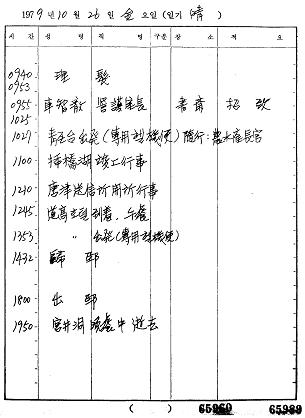 1979 년 10 월 26 일 金 요일 (일기 晴 )
시 간 성 명 직 명 구분 장 소 적 요
0940 理 髮
0953
0955 車智澈 警護室長 書斎
1025
1027 青瓦台出発(専用헬機便) 隨行:農水産長官
1100 揷橋湖竣工行事
1210 唐津送信所開所行事
1245 道高호텔到着, 午餐
1353 〃 出発(専用헬機便)
1432 歸 邸
1800 出 邸
1950 宮井洞 晩餐中 逝去
( ) 65960 65989